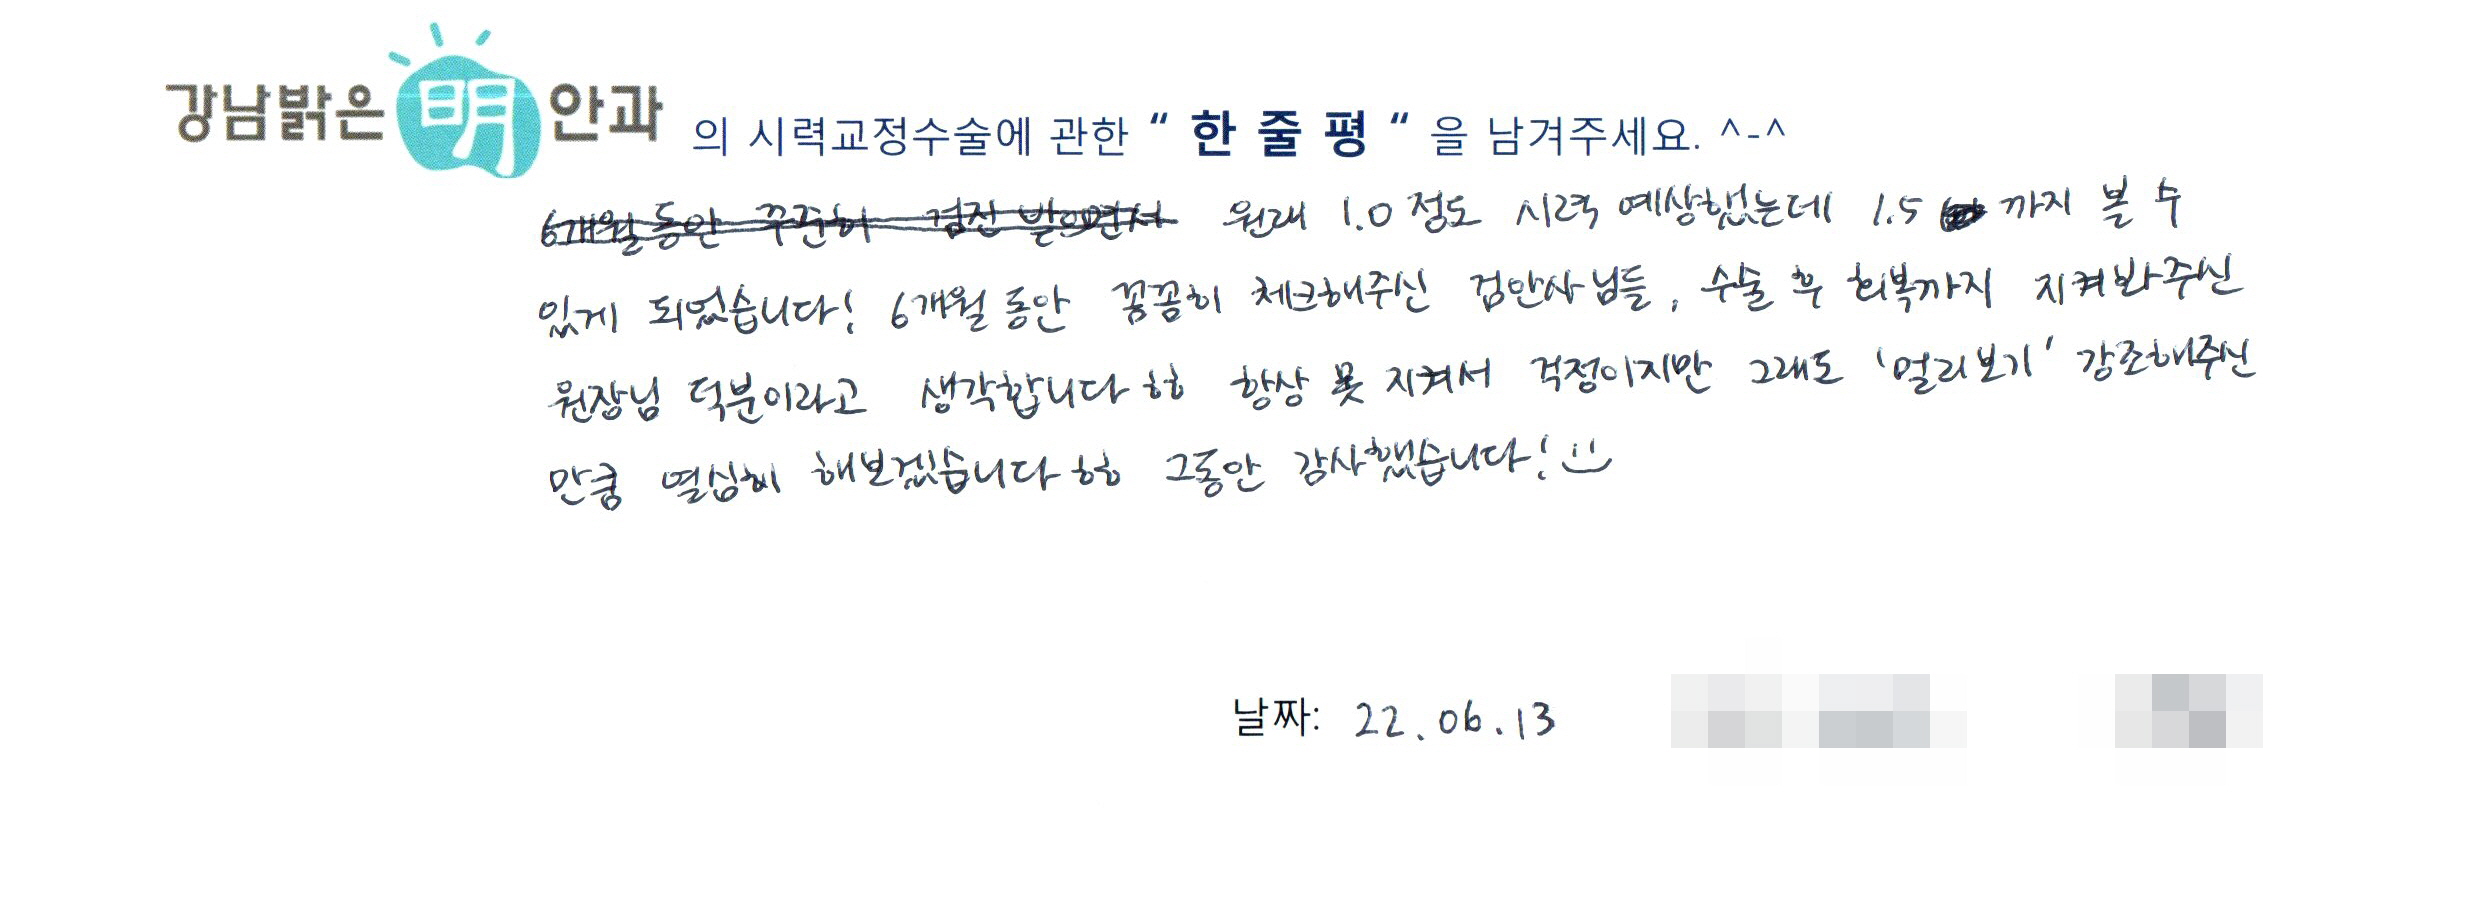 강남밝은 明 안과 의 시력교정수술에 관한 “ 한 줄 평 “ 을 남겨주세요. ^-^
6개월 동안 꾸준히 검진 받으면서 원래 1.0 정도 시력 예상했었는데 1.5 까지 볼 수
있게 되었습니다! 6개월 동안 꼼꼼히 체크해주신 검안사님들, 수술 후 회복까지 지켜봐주신
원장님 덕분이라고 생각합니다 ㅎㅎ 항상 못 지켜서 걱정이지만 그래도 '멀리보기' 강조해주신
만큼 열심히 해보겠습니다 ㅎㅎ 그동안 감사했습니다!
날짜: 22.06.13